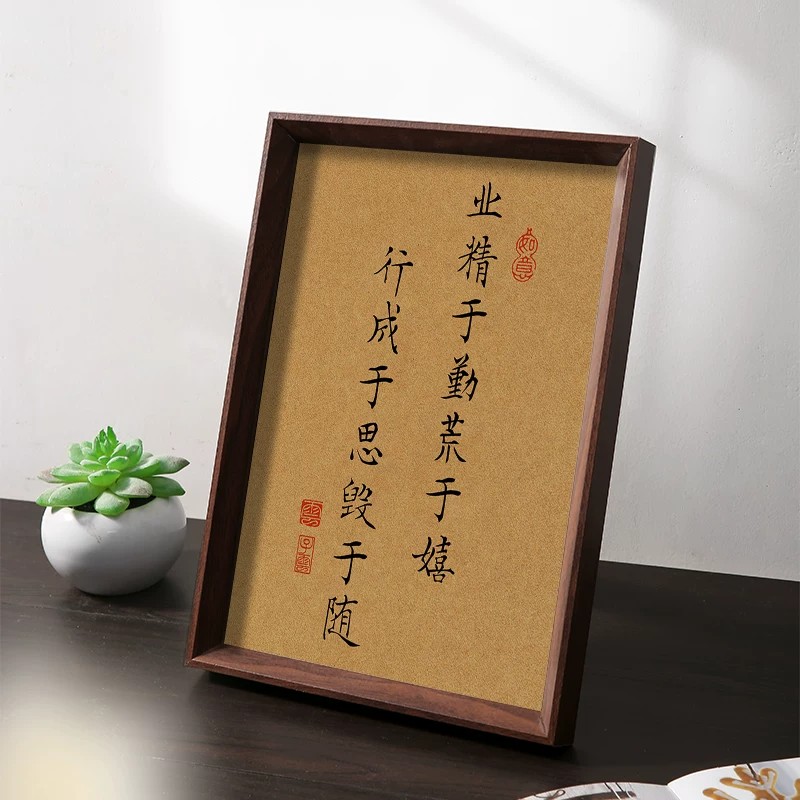 业精于勤荒于嬉
行成于思毁于随
如意